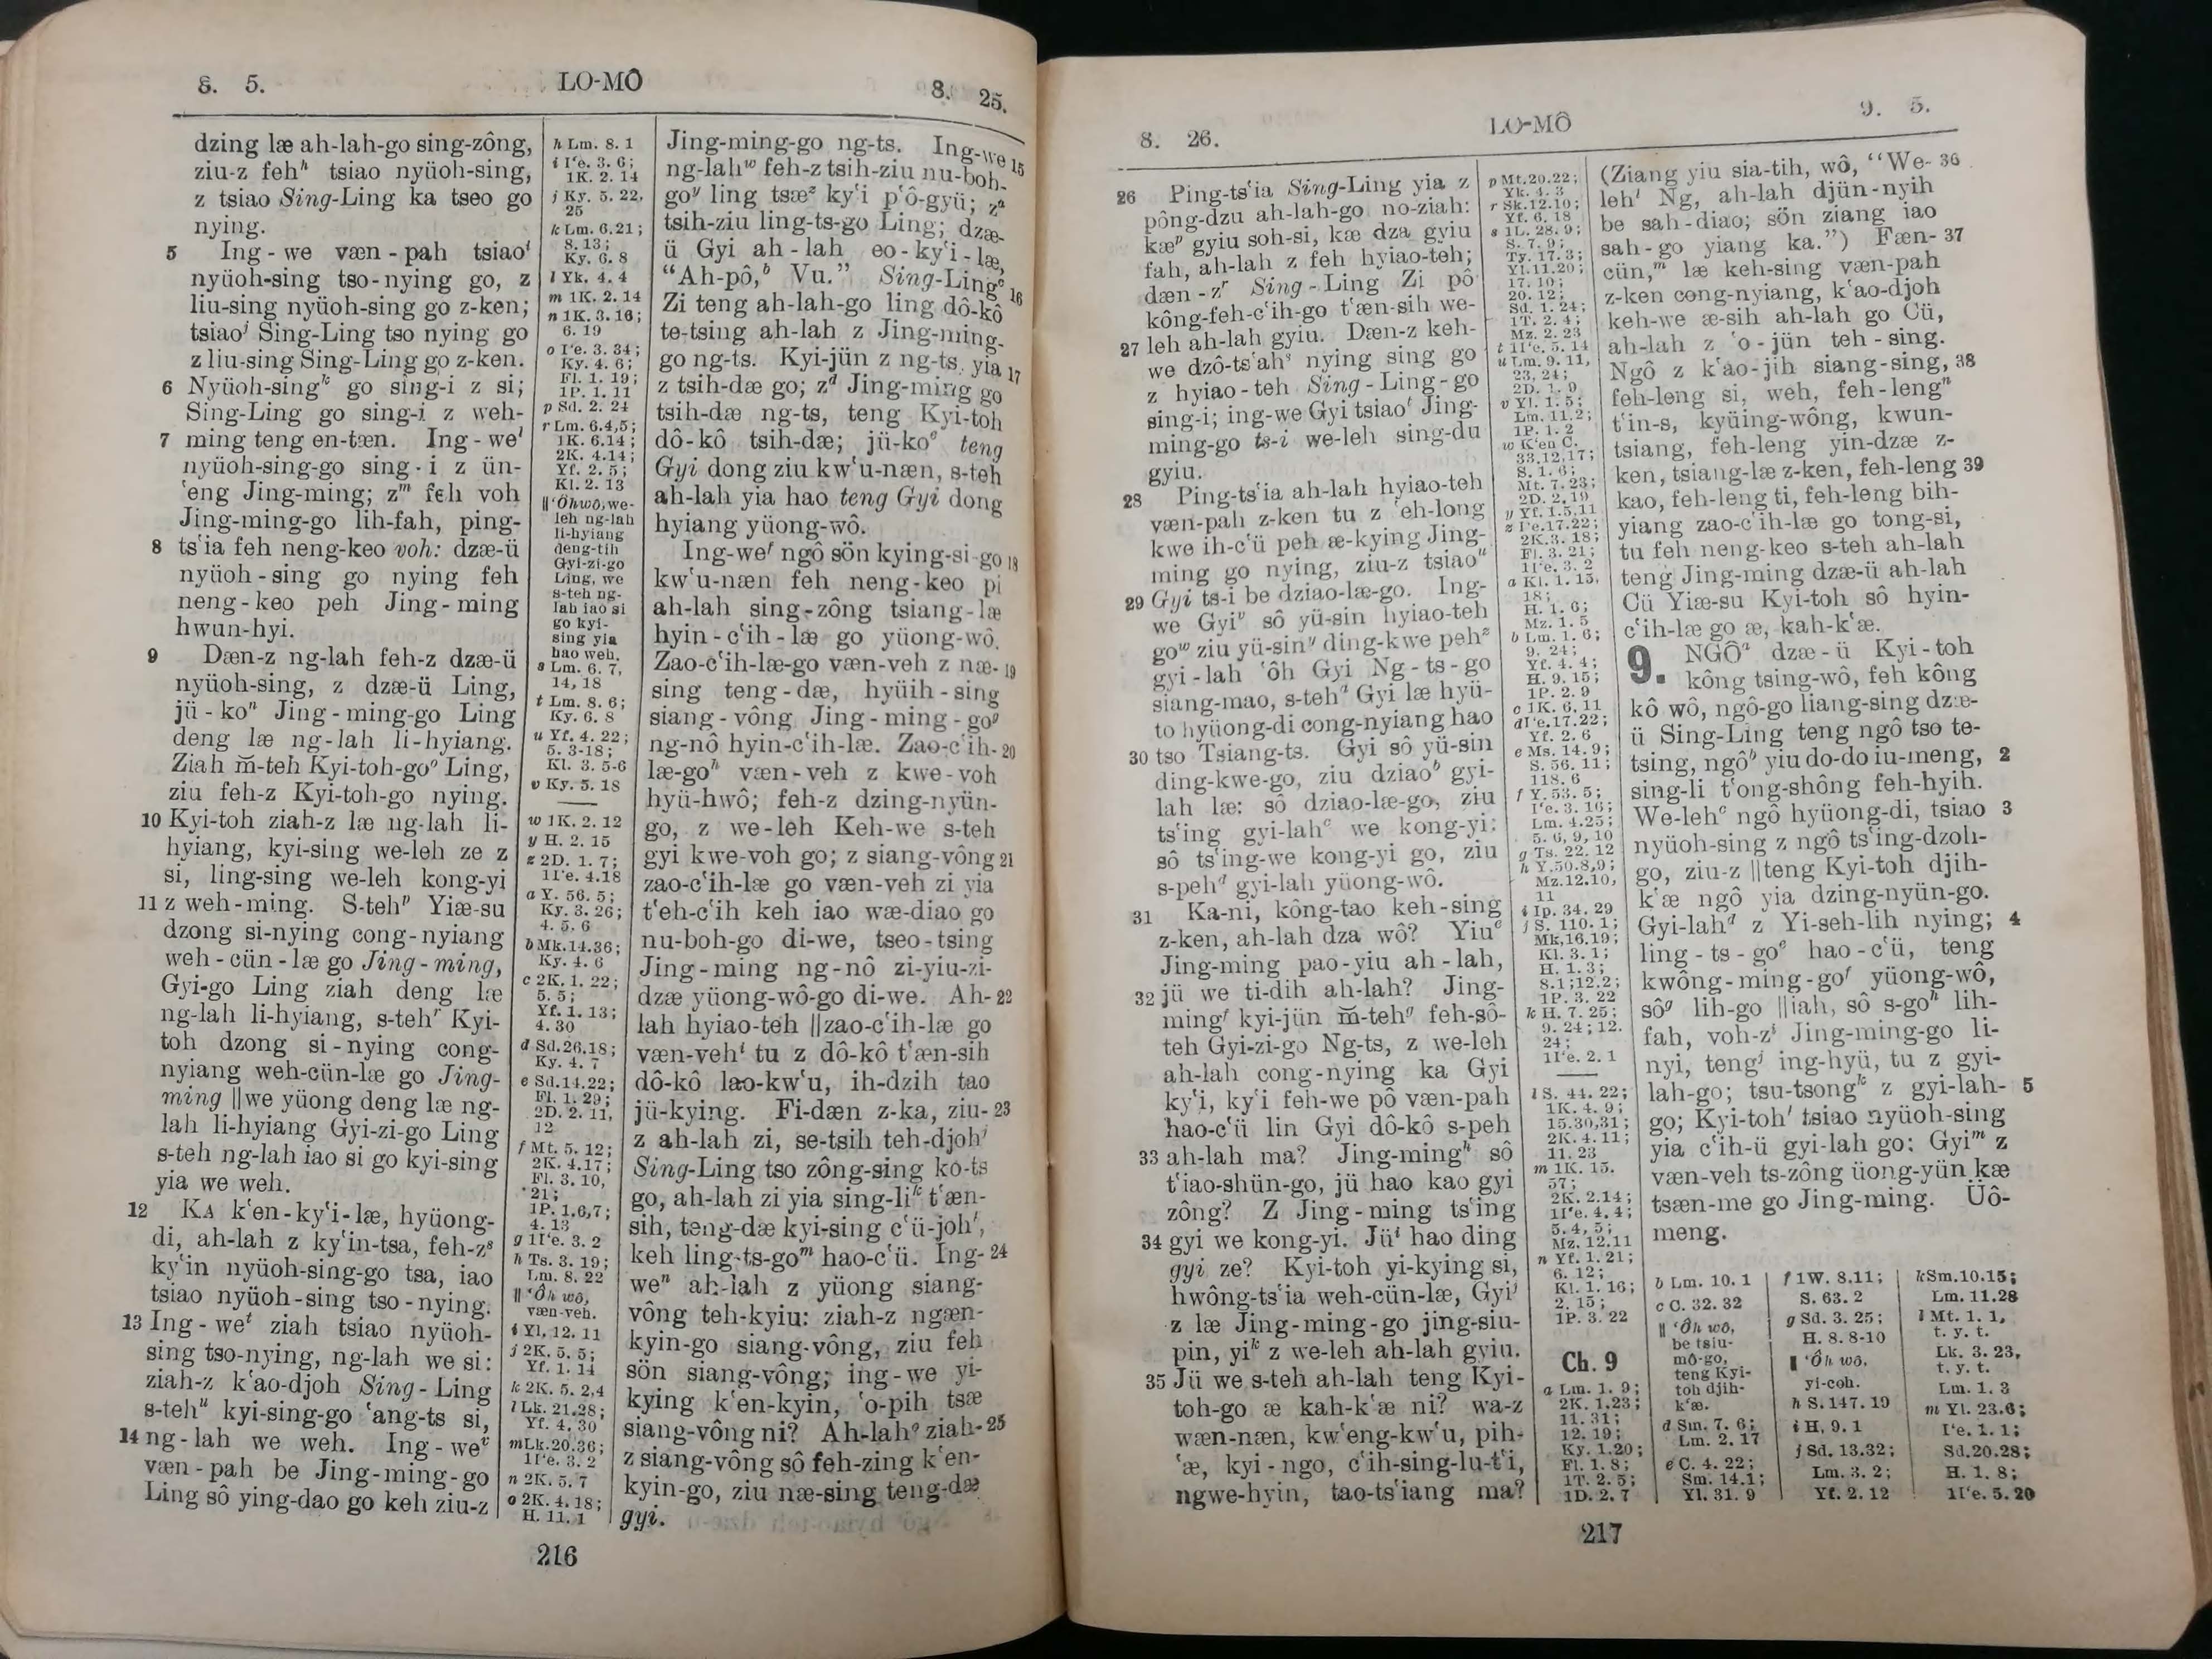 8. 5. LO-MÔ 8. 25.
dzing læ ah-lah-go sing-zông,
ziu-z fehʰ tsiao nyüoh-sing,
z tsiao Sing-Ling ka tseo go
nying.
5 Ing-we væn-pah tsiaoⁱ
nyüoh-sing tso-nying go, z
liu-sing nyüoh-sing go z-ken;
tsiaoʲ Sing-Ling tso nying go
z liu-sing Sing-Ling go z-ken.
6 Nyüoh-singᵏ go sing-i z si;
Sing-Ling go sing-i z weh-
7 ming teng en-tæn. Ing-weˡ
nyüoh-sing-go sing-i z ün-
ʽeng Jing-ming; zᵐ feh voh
Jing-ming-go lih-fah, ping-
8 tsʽia feh neng-keo voh: dzæ-ü
nyüoh-sing go nying feh
neng-keo peh Jing-ming
hwun-hyi.
9 Dæn-z ng-lah feh-z dzæ-ü
nyüoh-sing, z dzæ-ü Ling,
jü-koⁿ Jing-ming-go Ling
deng læ ng-lah li-hyiang.
Ziah m̆-teh Kyi-toh-goᵒ Ling,
ziu feh-z Kyi-toh-go nying.
10 Kyi-toh ziah-z læ ng-lah li-
hyiang, kyi-sing we-leh ze z
si, ling-sing we-leh kong-yi
11 z weh-ming. S-tehᵖ Yiæ-su
dzong si-nying cong-nyiang
weh-cün-læ go Jing-ming,
Gyi-go Ling ziah deng læ
ng-lah li-hyiang, s-tehʳ Kyi-
toh dzong si-nying cong-
nyiang weh-cün-læ go Jing-
ming ||we yüong deng læ ng-
lah li-hyiang Gyi-zi-go Ling
s-teh ng-lah iao si go kyi-sing
yia we weh.
12 KA kʽen-kyʽi-læ, hyüong-
di, ah-lah z kyʽin-tsa, feh-zˢ
kyʽin nyüoh-sing-go tsa, iao
tsiao nyüoh-sing tso-nying.
13 Ing-weᵗ ziah tsiao nyüoh-
sing tso-nying, ng-lah we si:
ziah-z kʽao-djoh Sing-Ling
s-tehᵘ kyi-sing-go ʽang-ts si,
14 ng-lah we weh. Ing-weᵛ
væn-pah be Jing-ming-go
Ling sô ying-dao go keh ziu-z
h Lm. 8. 1
i Iʽe. 3. 6;
1K. 2. 14
j Ky. 5. 22,
25
k Lm. 6.21;
8. 13;
Ky. 6. 8
l Yk. 4. 4
m 1K. 2. 14
n 1K. 3. 16;
6. 19
o Iʽe. 3. 34;
Ky. 4. 6;
Fl. 1. 19;
1P. 1. 11
p Sd. 2. 24
r Lm. 6.4,5;
1K. 6.14;
2K. 4.14;
Yf. 2. 5;
Kl. 2. 13
||ʽÔhwô, we-
leh ng-lah
li-hyiang
deng-tih
Gyi-zi-go
Ling, we
s-teh ng-
lah iao si
go kyi-
sing yia
hao weh.
s Lm. 6. 7,
14, 18
t Lm. 8. 6;
Ky. 6. 8
u Yf. 4. 22;
5. 3-18;
Kl. 3. 5-6
v Ky. 5. 18
w 1K. 2. 12
y H. 2. 15
z 2D. 1. 7;
1Iʽe. 4.18
a Y. 56. 5;
Ky. 3. 26;
4. 5. 6
b Mk.14.36;
Ky. 4. 6
c 2K. 1. 22;
5. 5;
Yf. 1. 13;
4. 30
d Sd.26.18;
Ky. 4. 7
e Sd.14.22;
Fl. 1. 29;
2D. 2. 11,
12
f Mt. 5. 12;
2K. 4.17;
Fl. 3. 10,
21;
1P. 1,6,7;
4. 13
g 1Iʽe. 3. 2
h Ts. 3. 19;
Lm. 8. 22
||ʽÔh wô,
væn-veh.
i Yl. 12. 11
j 2K. 5. 5;
Yf. 1. 14
k 2K. 5. 2,4
l Lk. 21.28;
Yf. 4. 30
m Lk.20.36;
1Iʽe. 3. 2
n 2K. 5. 7
o 2K. 4. 18;
H. 11. 1
Jing-ming-go ng-ts. Ing-we 15
ng-lahʷ feh-z tsih-ziu nu-boh-
goʸ ling tsæᶻ kyʽi pʽô-gyü; zᵃ
tsih-ziu ling-ts-go Ling; dzæ-
ü Gyi ah-lah eo-kyʽi-læ,
“Ah-pô,ᵇ Vu.” Sing-Lingᶜ 16
Zi teng ah-lah-go ling dô-kô
te-tsing ah-lah z Jing-ming-
go ng-ts. Kyi-jün z ng-ts, yia 17
z tsih-dæ go; zᵈ Jing-ming go
tsih-dæ ng-ts, teng Kyi-toh
dô-kô tsih-dæ; jü-koᵉ teng
Gyi dong ziu kwʽu-næn, s-teh
ah-lah yia hao teng Gyi dong
hyiang yüong-wô.
Ing-weᶠ ngô sön kying-si-go 18
kwʽu-næn feh neng-keo pi
ah-lah sing-zông tsiang-læ
hyin-cʽih-læ go yüong-wô.
Zao-cʽih-læ-go væn-veh z næ- 19
sing teng-dæ, hyüih-sing
siang-vông Jing-ming-goᵍ
ng-nô hyin-cʽih-læ. Zao-cʽih- 20
læ-goʰ væn-veh z kwe-voh
hyü-hwô; feh-z dzing-nyün-
go, z we-leh Keh-we s-teh
gyi kwe-voh go; z siang-vông 21
zao-cʽih-læ go væn-veh zi yia
tʽeh-cʽih keh iao wæ-diao go
nu-boh-go di-we, tseo-tsing
Jing-ming ng-nô zi-yiu-zi-
dzæ yüong-wô-go di-we. Ah- 22
lah hyiao-teh ||zao-cʽih-læ go
væn-vehⁱ tu z dô-kô tʽæn-sih
dô-kô lao-kwʽu, ih-dzih tao
jü-kying. Fi-dæn z-ka, ziu- 23
z ah-lah zi, se-tsih teh-djohʲ
Sing-Ling tso zông-sing ko-ts
go, ah-lah zi yia sing-liᵏ tʽæn-
sih, teng-dæ kyi-sing cʽü-johˡ,
keh ling-ts-goᵐ hao-cʽü. Ing- 24
weⁿ ah-lah z yüong siang-
vông teh-kyiu: ziah-z ngæn-
kyin-go siang-vông, ziu feh
sön siang-vông; ing-we yi-
kying kʽen-kyin, ʽo-pih tsæ
siang-vông ni? Ah-lahᵒ ziah- 25
z siang-vông sô feh-zing kʽen-
kyin-go, ziu næ-sing teng-dæ
gyi.
216
8. 26. LO-MÔ 9. 5.
26 Ping-tsʽia Sing-Ling yia z
pông-dzu ah-lah-go no-ziah:
kæᵖ gyiu soh-si, kæ dza gyiu
fah, ah-lah z feh hyiao-teh;
dæn-zʳ Sing-Ling Zi pô
kông-feh-cʽih-go tʽæn-sih we-
27 leh ah-lah gyiu. Dæn-z keh-
we dzô-tsʽahˢ nying sing go
z hyiao-teh Sing-Ling-go
sing-i; ing-we Gyi tsiaoᵗ Jing-
ming-go ts-i we-leh sing-du
gyiu.
28 Ping-tsʽia ah-lah hyiao-teh
væn-pah z-ken tu z ʽeh-long
kwe ih-cʽü peh æ-kying Jing-
ming go nying, ziu-z tsiaoᵘ
29 Gyi ts-i be dziao-læ-go. Ing-
we Gyiᵛ sô yü-sin hyiao-teh
goʷ ziu yü-sinʸ ding-kwe pehᶻ
gyi-lah ʽôh Gyi Ng-ts-go
siang-mao, s-tehᵃ Gyi læ hyü-
to hyüong-di cong-nyiang hao
30 tso Tsiang-ts. Gyi sô yü-sin
ding-kwe-go, ziu dziaoᵇ gyi-
lah læ: sô dziao-læ-go, ziu
tsʽing gyi-lahᶜ we kong-yi:
sô tsʽing-we kong-yi go, ziu
s-pehᵈ gyi-lah yüong-wô.
31 Ka-ni, kông-tao keh-sing
z-ken, ah-lah dza wô? Yiuᵉ
Jing-ming pao-yiu ah-lah,
32 jü we ti-dih ah-lah? Jing-
mingᶠ kyi-jün m̆-tehᵍ feh-sô-
teh Gyi-zi-go Ng-ts, z we-leh
ah-lah cong-nying ka Gyi
kyʽi, kyʽi feh-we pô væn-pah
hao-cʽü lin Gyi dô-kô s-peh
33 ah-lah ma? Jing-mingʰ sô
tʽiao-shün-go, jü hao kao gyi
zông? Z Jing-ming tsʽing
34 gyi we kong-yi. Jüⁱ hao ding
gyi ze? Kyi-toh yi-kying si,
hwông-tsʽia weh-cün-læ, Gyiʲ
z læ Jing-ming-go jing-siu-
pin, yiᵏ z we-leh ah-lah gyiu.
35 Jü we s-teh ah-lah teng Kyi-
toh-go æ kah-kʽæ ni? wa-z
wæn-næn, kwʽeng-kwʽu, pih-
ʽæ, kyi-ngo, cʽih-sing-lu-tʽi,
ngwe-hyin, tao-tsʽiang ma?
p Mt.20.22;
Yk. 4. 3
r Sk.12.10;
Yf. 6. 18
s 1L. 28. 9;
S. 7. 9;
Ty. 17. 3;
Yl.11.20;
17. 10;
20. 12;
Sd. 1. 24;
1T. 2. 4;
Mz. 2. 23
t 1Iʽe. 5. 14
u Lm. 9. 11,
23, 24;
2D. 1. 9
v Yl. 1. 5;
Lm. 11.2;
1P. 1. 2
w Kʽen C.
33.12,17;
S. 1. 6;
Mt. 7. 23;
2D. 2. 19
y Yf. 1.5,11
z Iʽe.17.22;
2K.3. 18;
Fl. 3. 21;
1Iʽe. 3. 2
a Kl. 1. 15,
18;
H. 1. 6;
Mz. 1. 5
b Lm. 1. 6;
9. 24;
Yf. 4. 4;
H. 9. 15;
1P. 2. 9
c 1K. 6. 11
d Iʽe.17.22;
Yf. 2. 6
e Ms. 14. 9;
S. 56. 11;
118. 6
f Y. 53. 5;
Iʽe. 3. 16;
Lm. 4.25;
5. 6, 9, 10
g Ts. 22. 12
h Y.50.8,9;
Mz.12.10,
11
i Ip. 34. 29
j S. 110. 1;
Mk,16.19;
Kl. 3. 1;
H. 1. 3;
8.1;12.2;
1P. 3. 22
k H. 7. 25;
9. 24; 12.
24;
1Iʽe. 2. 1
l S. 44. 22;
1K. 4. 9;
15.30,31;
2K. 4. 11;
11. 23
m 1K. 15.
57;
2K. 2.14;
1Iʽe. 4. 4;
5. 4, 5;
Mz. 12.11
n Yf. 1. 21;
6. 12;
Kl. 1. 16;
2. 15;
1P. 3. 22
Ch. 9
a Lm. 1. 9;
2K. 1.23;
11. 31;
12. 19;
Ky. 1.20;
Fl. 1. 8;
1T. 2. 5;
1D. 2. 7
(Ziang yiu sia-tih, wô, “We- 36
lehˡ Ng, ah-lah djün-nyih
be sah-diao; sön ziang iao
sah-go yiang ka.”) Fæn- 37
cün,ᵐ læ keh-sing væn-pah
z-ken cong-nyiang, kʽao-djoh
keh-we æ-sih ah-lah go Cü,
ah-lah z ʽo-jün teh-sing.
Ngô z kʽao-jih siang-sing, 38
feh-leng si, weh, feh-lengⁿ
tʽin-s, kyüing-wông, kwun-
tsiang, feh-leng yin-dzæ z-
ken, tsiang-læ z-ken, feh-leng 39
kao, feh-leng ti, feh-leng bih-
yiang zao-cʽih-læ go tong-si,
tu feh neng-keo s-teh ah-lah
teng Jing-ming dzæ-ü ah-lah
Cü Yiæ-su Kyi-toh sô hyin-
cʽih-læ go æ, kah-kʽæ.
9. NGÔᵃ dzæ-ü Kyi-toh
kông tsing-wô, feh kông
kô wô, ngô-go liang-sing dzæ-
ü Sing-Ling teng ngô tso te-
tsing, ngôᵇ yiu do-do iu-meng, 2
sing-li tʽong-shông feh-hyih.
We-lehᶜ ngô hyüong-di, tsiao 3
nyüoh-sing z ngô tsʽing-dzoh-
go, ziu-z ||teng Kyi-toh djih-
kʽæ ngô yia dzing-nyün-go.
Gyi-lahᵈ z Yi-seh-lih nying; 4
ling-ts-goᵉ hao-cʽü, teng
kwông-ming-goᶠ yüong-wô,
sôᵍ lih-go ||iah, sô s-goʰ lih-
fah, voh-zⁱ Jing-ming-go li-
nyi, tengʲ ing-hyü, tu z gyi-
lah-go; tsu-tsongᵏ z gyi-lah- 5
go; Kyi-tohˡ tsiao nyüoh-sing
yia cʽih-ü gyi-lah go: Gyiᵐ z
væn-veh ts-zông üong-yün kæ
tsæn-me go Jing-ming. Üô-
meng.
b Lm. 10. 1
c C. 32. 32
||ʽÔh wô,
be tsiu-
mô-go,
teng Kyi-
toh djih-
kʽæ.
d Sm. 7. 6;
Lm. 2. 17
e C. 4. 22;
Sm. 14.1;
Yl. 31. 9
f 1W. 8.11;
S. 63. 2
g Sd. 3. 25;
H. 8. 8-10
||ʽÔh wô,
yi-coh.
h S. 147. 19
i H. 9. 1
j Sd. 13.32;
Lm. 3. 2;
Yf. 2. 12
k Sm.10.15;
Lm. 11.28
l Mt. 1. 1,
t. y. t.
Lk. 3. 23,
t. y. t.
Lm. 1. 3
m Yl. 23.6;
Iʽe. 1. 1;
Sd.20.28;
H. 1. 8;
1Iʽe. 5. 20
217